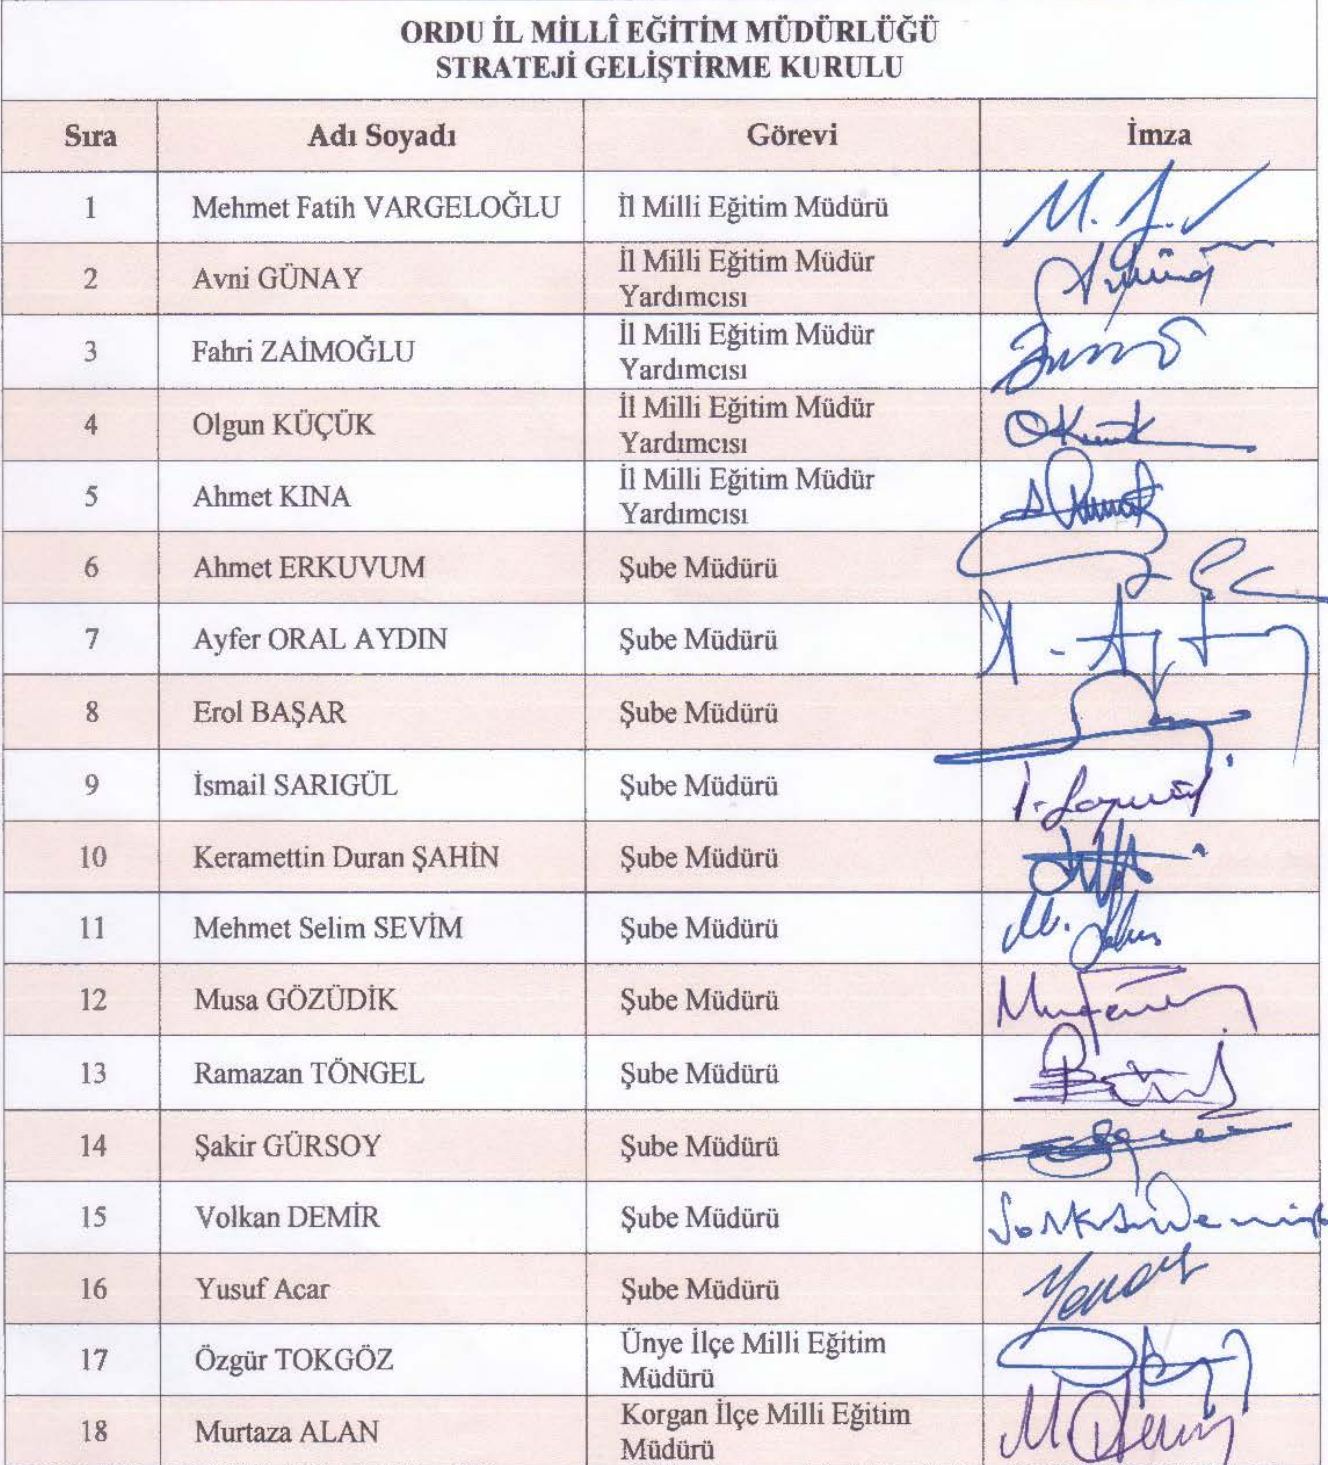 ORDU İL MİLLÎ EĞİTİM MÜDÜRLÜĞÜ
STRATEJİ GELİŞTİRME KURULU
Sıra Adı Soyadı Görevi İmza
1 Mehmet Fatih VARGELOĞLU İl Milli Eğitim Müdürü
2 Avni GÜNAY İl Milli Eğitim Müdür
Yardımcısı
3 Fahri ZAİMOĞLU İl Milli Eğitim Müdür
Yardımcısı
4 Olgun KÜÇÜK İl Milli Eğitim Müdür
Yardımcısı
5 Ahmet KINA İl Milli Eğitim Müdür
Yardımcısı
6 Ahmet ERKUVUM Şube Müdürü
7 Ayfer ORAL AYDIN Şube Müdürü
8 Erol BAŞAR Şube Müdürü
9 İsmail SARIGÜL Şube Müdürü
10 Keramettin Duran ŞAHİN Şube Müdürü
11 Mehmet Selim SEVİM Şube Müdürü
12 Musa GÖZÜDİK Şube Müdürü
13 Ramazan TÖNGEL Şube Müdürü
14 Şakir GÜRSOY Şube Müdürü
15 Volkan DEMİR Şube Müdürü
16 Yusuf Acar Şube Müdürü
17 Özgür TOKGÖZ Ünye İlçe Milli Eğitim
Müdürü
18 Murtaza ALAN Korgan İlçe Milli Eğitim
Müdürü